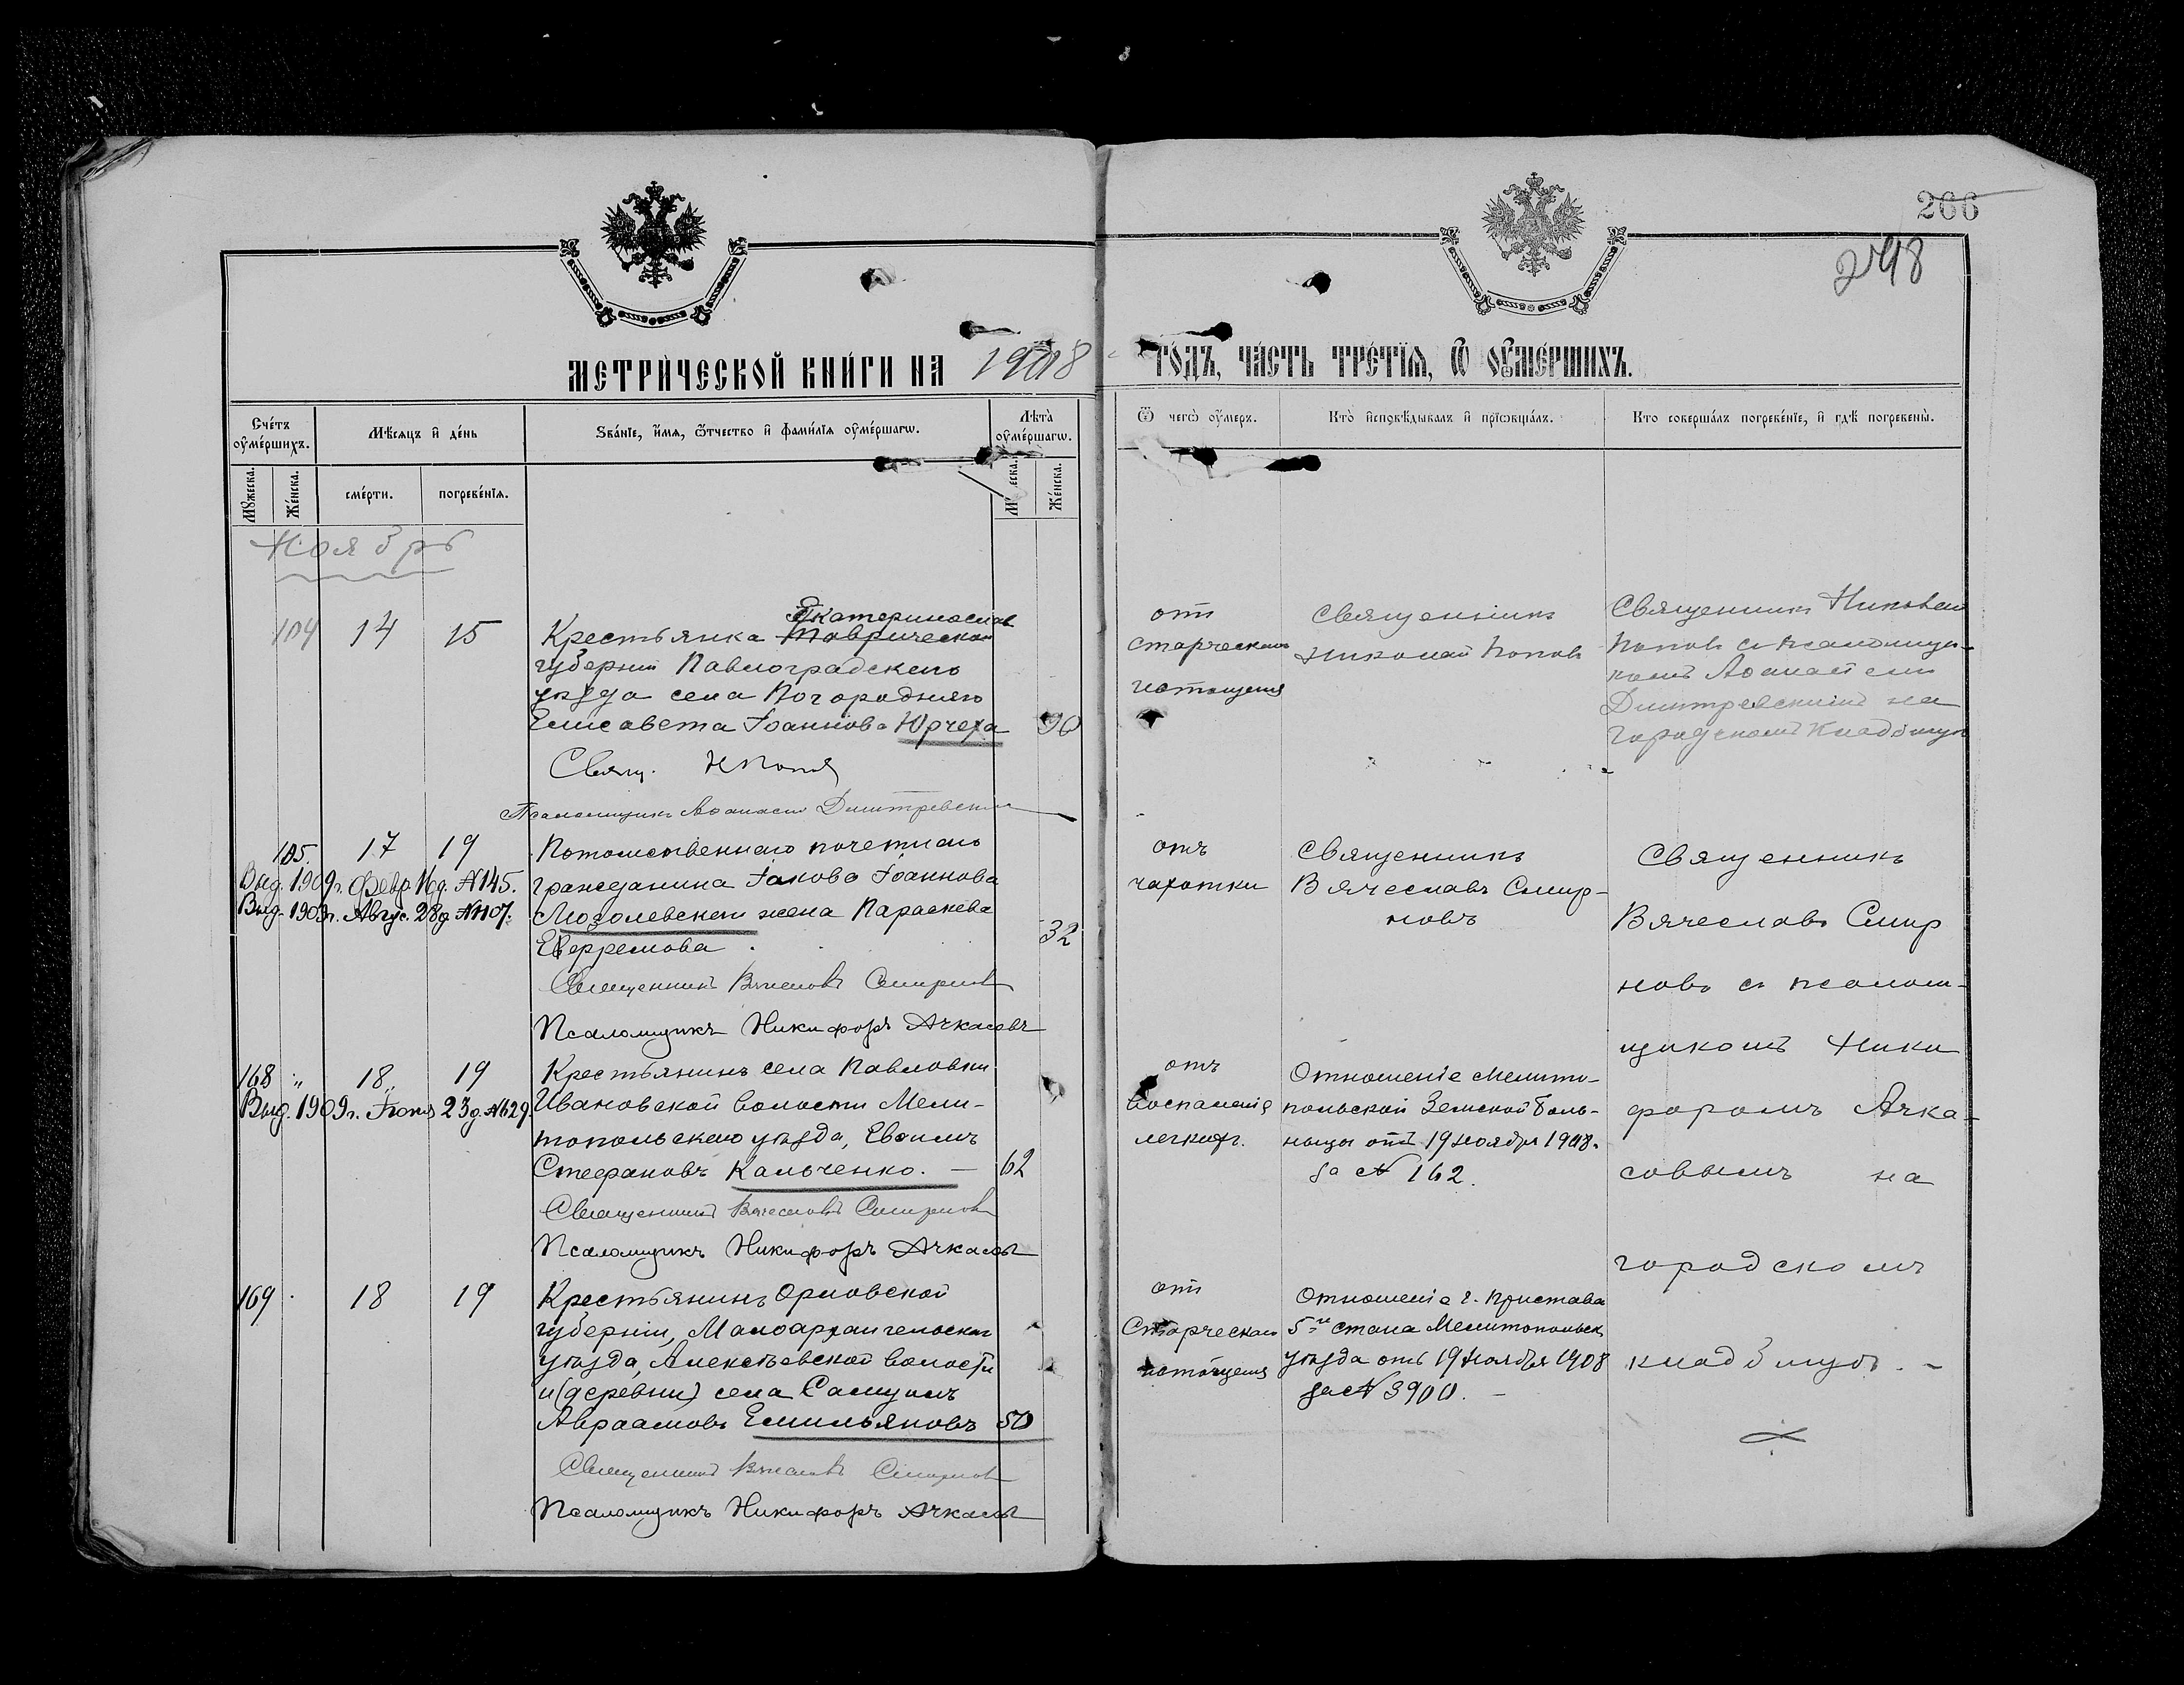 266
248
МЕТРИ́ЧЕСКОЙ КНИ́ГИ НА 1908 ГО́ДЪ, ЧА́СТЬ ТРЕ́ТІѦ, Ѿ ОУ҆МЕ́РШИХЪ.
Сче́тъ оу҆ме́ршихъ.
Мѣ́сяцъ и де́нь
Зва́нїе, и҆́мѧ, ѻ҆́тчество и҆ фами́лїѧ оу҆ме́ршагѡ.
Лѣта̀ оу҆ме́ршагѡ.
Ѿ чегѡ̀ оу҆́меръ.
Кто̀ и҆сповѣ́дывалъ и҆ прїѡбща́лъ.
Кто соверша́лъ погребе́нїе, и҆ гдѣ̀ погребены̀.
Мꙋ́жеска.
Же́нска.
сме́рти.
погребе́нїѧ.
Же́нска.
Ноябрь
104 14 15
Екатеринослав
Крестьянка Таврической
губернии Павлоградскаго
уѣзда села Богородняго
Елисавета Іоаннова Юрчеха 90
Свящ. Н Поповъ
Псаломщикъ Аѳанасій Димитревскій
отъ
старческаго
истощенія
Священникъ
Николай Поповъ
Священникъ Николай
Поповъ съ псаломщи-
комъ Аѳанасіемъ
Димитревскимъ на
городскомъ кладбищѣ
105. 17 19
Выд. 1909г. Февр. 16д. №145.
Выд. 1909г. Авгус. 28д. №1107.
Потомственнаго почетнаго
гражданина Іакова Іоаннова
Мозолевскаго жена Параскева
Евфремова 32
Священникъ Вячеславъ Смирновъ
Псаломщикъ Никифоръ Ачкасовъ
отъ
чахотки
Священникъ
Вячеславъ Смир-
новъ
Священникъ
Вячеславъ Смир
новъ съ псалом-
щикомъ Ники
форомъ Ачка-
совымъ на
городскомъ
кладбищѣ. -
168 " 18 19
Выд. 1909г. Іюня 23д. №629.
Крестьянинъ села Павловки
Ивановской волости Мели-
топольскаго уѣзда, Евѳимъ
Стефановъ Кальченко. — 62
Священникъ Вячеславъ Смирновъ
Псаломщикъ Никифоръ Ачкасовъ
отъ
воспаленія
легкихъ.
Отношеніе Мелито-
польской Земской боль-
ницы отъ 19 ноября 1908.
за № 162.
169 18 19
Крестьянинъ Орловской
губерніи, Малоархангельскаго
уѣзда, Алексѣевской волости
и (деревни) села Самуилъ
Авраамовъ Емильяновъ 50
Священникъ Вячеславъ Смирновъ
Псаломщикъ Никифоръ Ачкасовъ
отъ
Старческаго
истощенія
Отношеніе г. Пристава
5го стана Мелитопольск.
уѣзда отъ 19 Ноября 1908
за № 3900. -